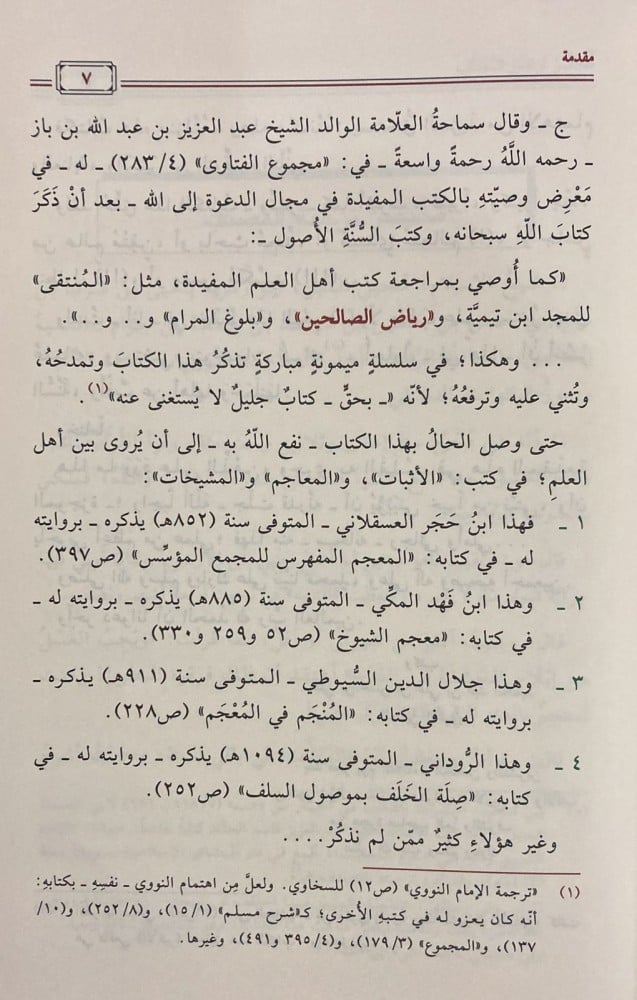 مقدمة
٧
ج ـ وقال سماحةُ العلّامة الوالد الشيخ عبد العزيز بن عبد الله بن باز
ـ رحمه اللَّهُ رحمةً واسعةً ـ في: «مجموع الفتاوى» (٤/ ٢٨٣) ـ له ـ في
مَعْرِض وصيّتهِ بالكتب المفيدة في مجال الدعوة إلى الله ـ بعد أنْ ذَكَرَ
كتابَ اللّهِ سبحانه، وكتبَ السُّنَّةِ الأُصول ـ:
«كما أُوصي بمراجعة كتب أهل العلم المفيدة، مثل: «المُنتقى»
للمجد ابن تيميَّة، و«رياض الصالحين»، و«بلوغ المرام» و.. و..».
... وهكذا؛ في سلسلةٍ ميمونةٍ مباركةٍ تذكُرُ هذا الكتابَ وتمدحُهُ،
وتُثني عليه وترفعُهُ؛ لأنّه «ـ بحقٍّ ـ كتابٌ جليلٌ لا يُستغنى عنه»(١).
حتى وصل الحالُ بهذا الكتاب ـ نفع اللّهُ به ـ إلى أن يُروى بين أهل
العلمِ؛ في كتب: «الأثبات»، و«المعاجم» و«المشيخات»:
١ ـ فهذا ابنُ حَجَر العسقلاني ـ المتوفى سنة (٨٥٢هـ) يذكره ـ بروايته
له ـ في كتابه: «المعجم المفهرس للمجمع المؤسِّس» (ص٣٩٧).
٢ ـ وهذا ابنُ فَهْد المكِّي ـ المتوفى سنة (٨٨٥هـ) يذكره ـ بروايته له ـ
في كتابه: «معجم الشيوخ» (ص٥٢ و٢٥٩ و٣٣٠).
٣ ـ وهذا جلال الدين السُّيوطي ـ المتوفى سنة (٩١١هـ) يذكره ـ
بروايته له ـ في كتابه: «المُنْجَم في المُعْجَم» (ص٢٢٨).
٤ ـ وهذا الرُّوداني ـ المتوفى سنة (١٠٩٤هـ) يذكره ـ بروايته له ـ في
كتابه: «صِلَة الخَلَف بموصول السلف» (ص٢٥٢).
وغير هؤلاءِ كثيرٌ ممّن لم نذكُرْ....
(١) «ترجمة الإمام النووي» (ص١٢) للسخاوي. ولعلَّ مِن اهتمام النووي ـ نفسِهِ ـ بكتابهِ:
أنّه كان يعزو له في كتبهِ الأُخرى؛ كـ«شرح مسلم» (١/ ١٥)، و(٨/ ٢٥٢)، و(١٠/
١٣٧)، و«المجموع» (٣/ ١٧٩)، و(٤/ ٣٩٥ و٤٩١)، وغيرها.